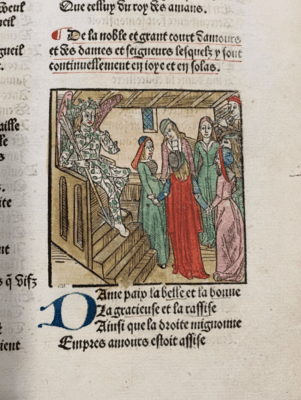 Que celluy du roy des amans.
De la noble et grant court damours
et des dames et seigneurs lesquelz y sont
continuellement en ioye et en solas.
Dame paix la belle et la bonne
La gracieuse et la rassise
Ainsi que la droite mignonne
Empres amours estoit assise